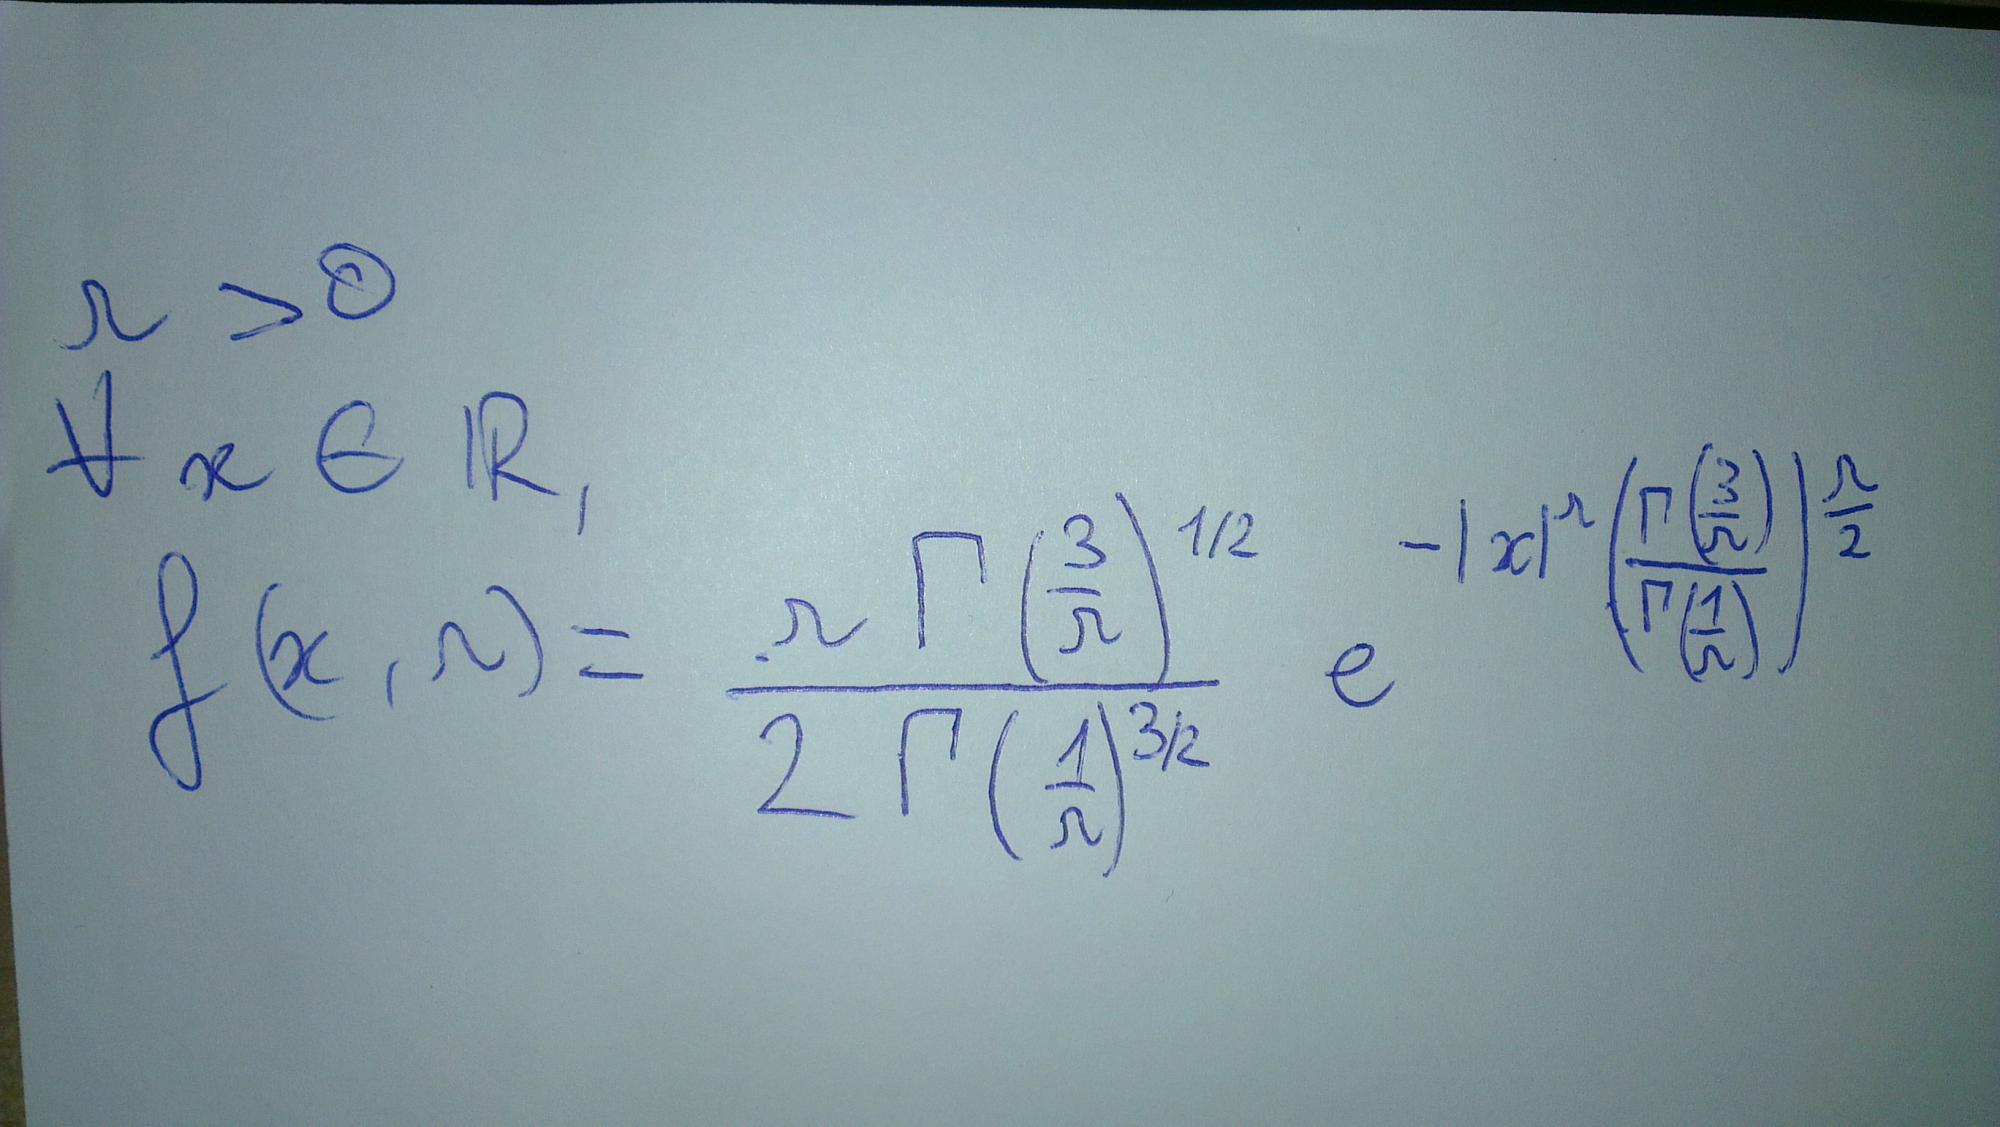 r > 0
∀ x ∈ ℝ,
f(x, r) = \frac{r Γ(\frac{3}{r})^{1/2}}{2 Γ(\frac{1}{r})^{3/2}} e^{-|x|^r (\frac{Γ(\frac{3}{r})}{Γ(\frac{1}{r})})^{\frac{r}{2}}}